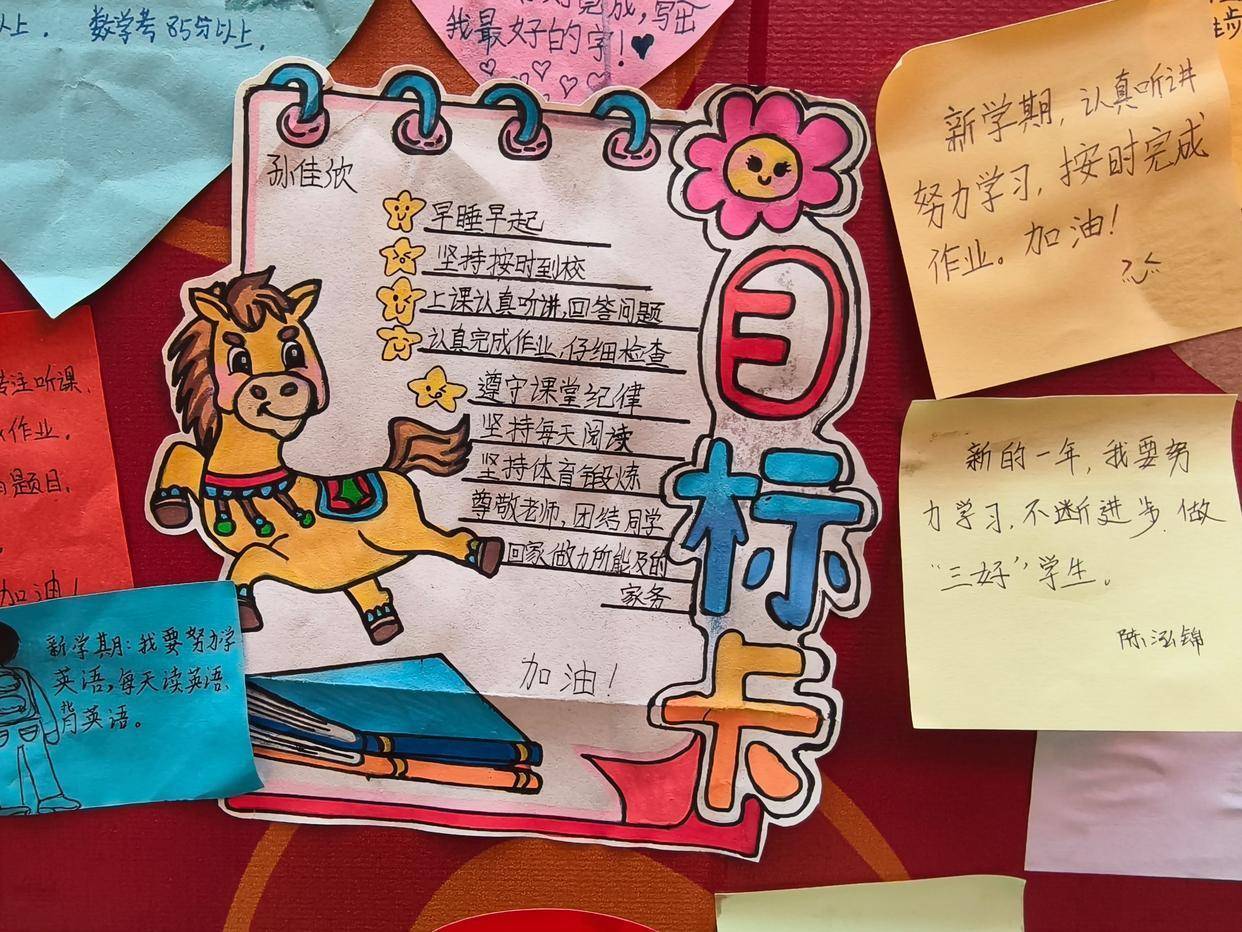 以上。 数学考85分以上。
完成,写出
我最好的字!
孙佳欣
早睡早起
坚持按时到校
上课认真听讲,回答问题
认真完成作业,仔细检查
遵守课堂纪律
坚持每天阅读
坚持体育锻炼
尊敬老师,团结同学
回家做力所能及的
家务
加油!
目标卡
新学期,认真听讲
努力学习,按时完成
作业。加油!
新的一年,我要努
力学习,不断进步,做
“三好”学生。
陈泓锦
专注听课,
作业。
题目,
加油!
新学期:我要努力学
英语,每天读英语,
背英语。